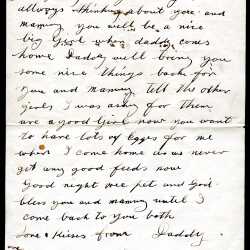 allways thinking about you and
mammy you will be a nice
big Girl when daddy comes
home Daddy will bring you
some nice things back for
you and mammy tell the other
girls I was asking for them
are a good Girl now you want
to have lots of Egges for me
when I come home as we never
get any good feeds now
Good night wee pet and God
bless you and mammy until I
come back to you both
love & Kisses from Daddy